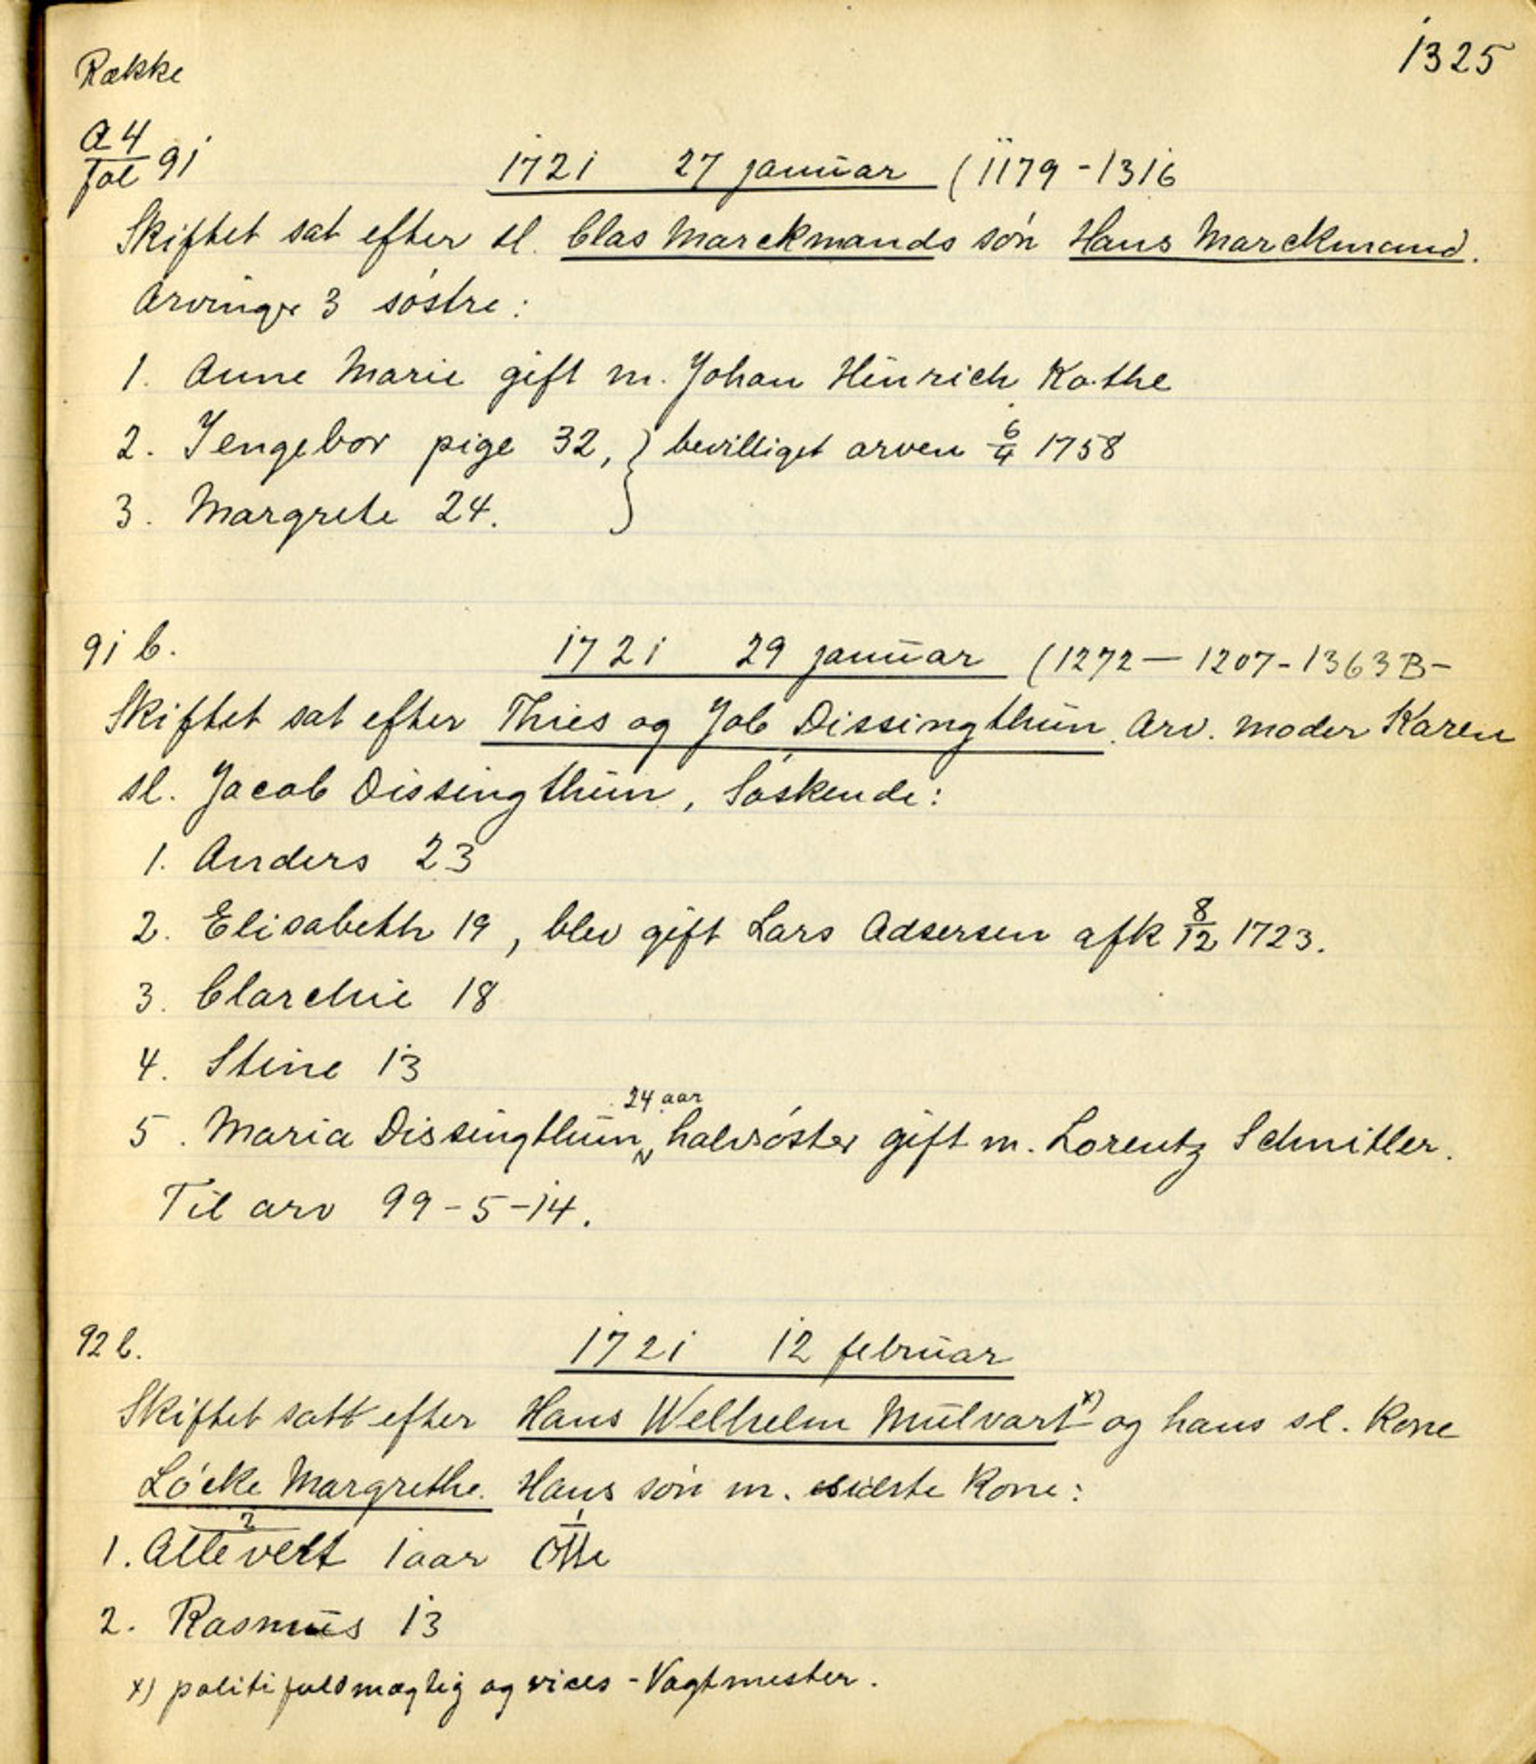 Række
1325
A 4
fol 91
1721 27 januar (1179 - 1316
Skiftet sat efter sl. Clas Marckmands søn Hans Marckmand.
Arvinger 3 søstre:
1. Anne Marie gift m. Johan Hinrich Kothe
2. Yengebor pige 32, } bevilliget arven 6/4 1758
3. Margrete 24.
91 b.
1721 29 januar (1272 — 1207 - 1363 B -
Skiftet sat efter Thies og Job Dissingthun. Arv. moder Karen
sl. Jacob Dissingthun, Søskende:
1. Anders 23
2. Elisabeth 19, blev gift Lars Adsersen afk 8/12 1723.
3. Clarchie 18
4. Stine 13
24 aar
5. Maria Dissingthun, halvsøster gift m. Lorentz Schnitler.
Til arv 99 - 5 - 14.
92 b.
1721 12 februar
Skiftet satt efter Hans Welhelm Mulvart x) og hans sl. Kone
Løcke Margrethe. Hans søn m. sidste Kone:
1. Attevert 1 aar Otte
2. Rasmus 13
x) politifuldmægtig og vices - Vagtmester.